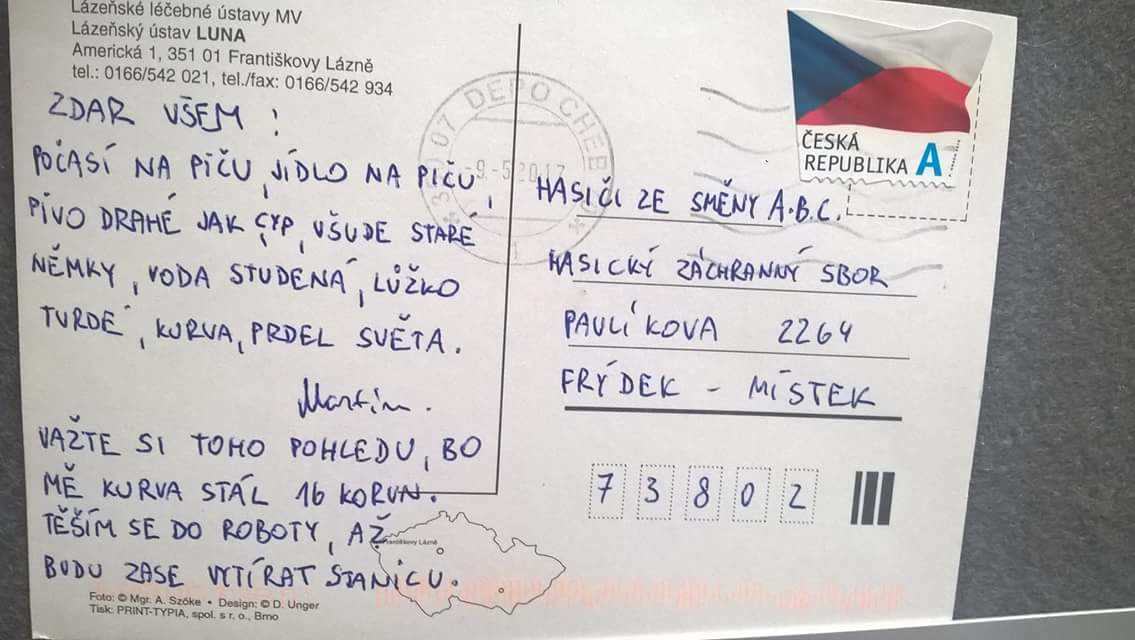 Lázeňské léčebné ústavy MV
Lázeňský ústav LUNA
Americká 1, 351 01 Františkovy Lázně
tel.: 0166/542 021, tel./fax: 0166/542 934
ZDAR VŠEM !
POČASÍ NA PIČU, JÍDLO NA PIČU,
PIVO DRAHÉ JAK CYP, VŠUDE STARÉ
NĚMKY, VODA STUDENÁ, LŮŽKO
TURDÉ, KURVA, PRDEL SVĚTA.
Martin.
VAŽTE SI TOHO POHLEDU, BO
MĚ KURVA STÁL 16 KORUN.
TĚŠÍM SE DO ROBOTY, AŽ
BUDU ZASE VYTÍRAT STANICU.
Foto: © Mgr. A. Szöke • Design: © D. Unger
Tisk: PRINT-TYPIA, spol. s r. o., Brno
Františkovy Lázně
07 DEPO CHEB
-9.-5.2017
1
ČESKÁ
REPUBLIKA A
HASIČI ZE SMĚNY A.B.C.
HASICKÝ ZÁCHRANNÝ SBOR
PAVLÍKOVA 2264
FRÝDEK - MÍSTEK
73802